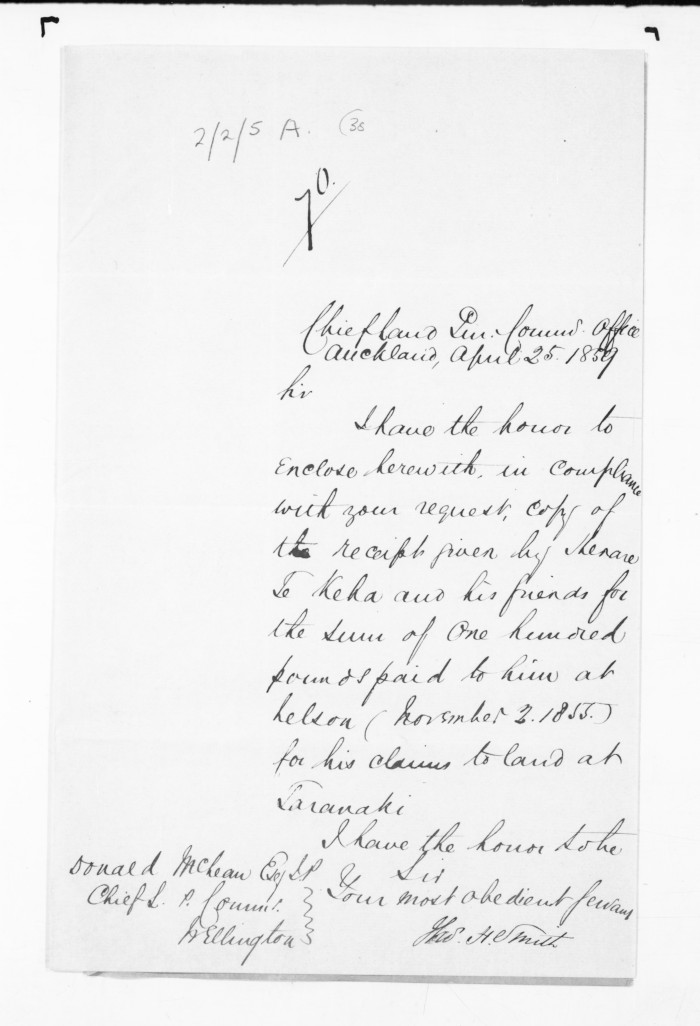 2/2/5 A. (38
70.
Chief Land Pur: Commr. Office
Auckland, April 25. 1859
Sir
I have the honor to
Enclose herewith, in compliance
with your request, copy of
the receipt given by Henare
Te Keha and his friends for
the sum of One hundred
pounds paid to him at
Nelson (November 2. 1855.)
for his claims to land at
Taranaki
I have the honor to be
Sir
Your most obedient Servant
Thos. H. Smith
Donald McLean Esq J.P
Chief L. P. Commr.
Wellington